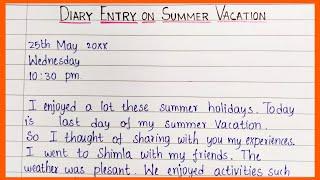 DIARY ENTRY ON SUMMER VACATION
25th May 20xx
Wednesday
10:30 pm.
I enjoyed a lot these summer holidays. Today
is last day of my summer vacation.
So I thought of sharing with you my experiences.
I went to Shimla with my friends. The
weather was plesant. We enjoyed activities such